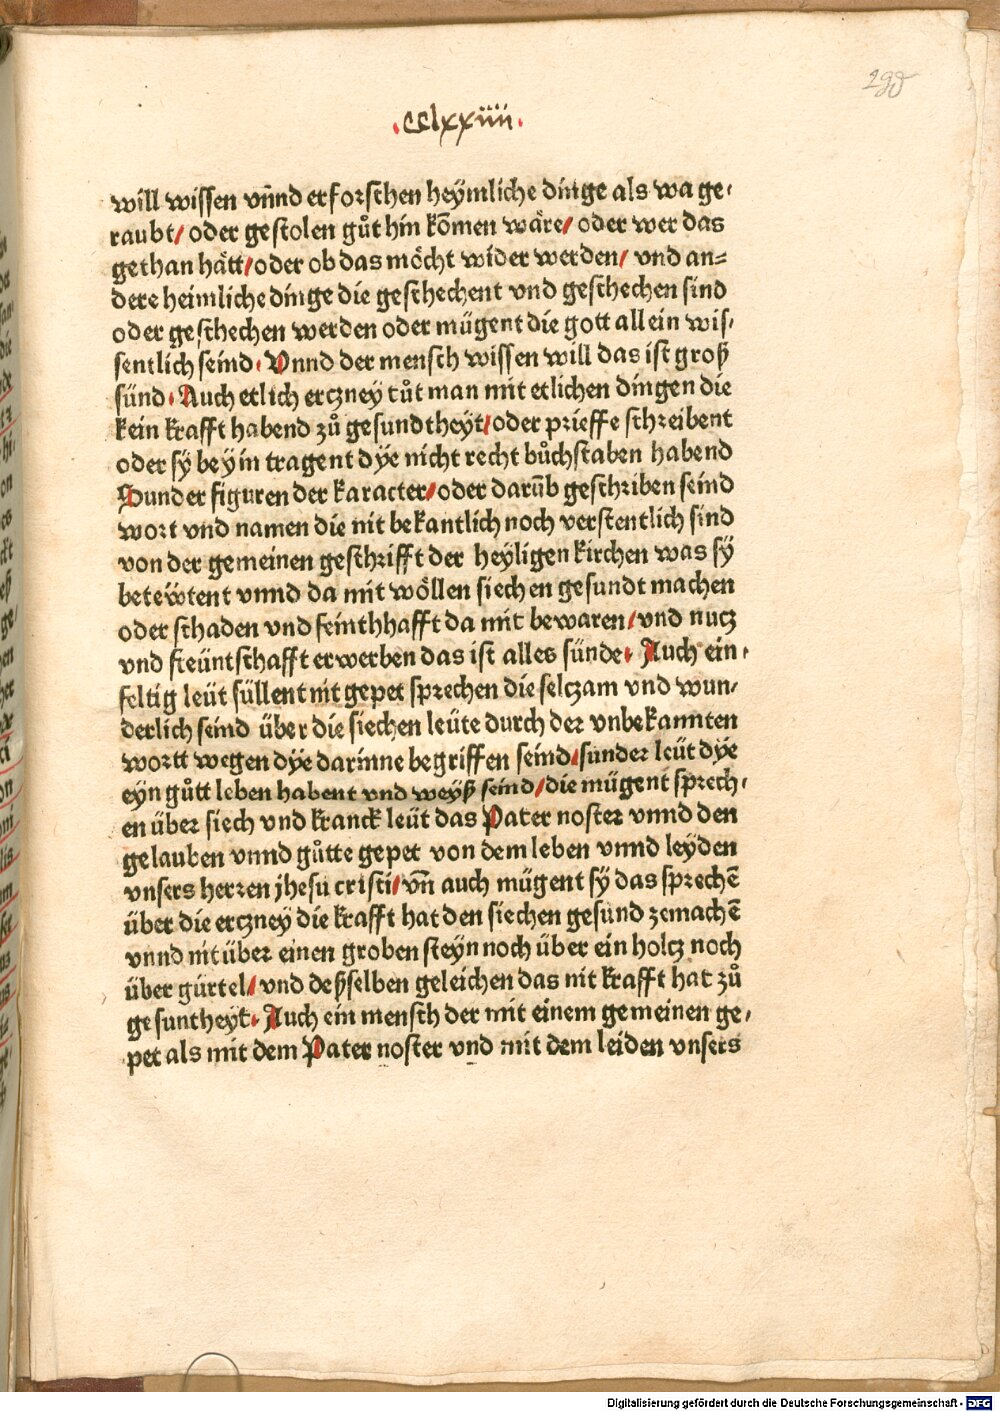 298
.cclxxiiii.
will wissen vn̄nd erforschen heÿmliche dinge als wa ge-
raubt/ oder gestolen gůt hin kōmen wäre/ oder wer das
gethan hätt/oder ob das möcht wider werden/ vnd an=
dere heimliche dinge die geschechent vnd geschechen sind
oder geschechen werden oder mügent die gott allein wis-
sentlich seind. Vnnd der mensch wissen will das ist groß
sünd. Auch etlich erczney tůt man mit etlichen dingen die
kein krafft habend zů gesundtheyt/oder prieffe schreibent
oder sÿ beyin tragent dÿe nicht recht bůchstaben habend
Sunder figuren der karacter/oder darūb geschriben seind
wort vnd namen die nit bekantlich noch verstentlich sind
von der gemeinen geschrifft der heÿligen kirchen was sÿ
beteẅtent vnnd da mit wöllen siechen gesundt machen
oder schaden vnd feinthhafft da mit bewaren/vnd nucz
vnd freüntschafft erwerben das ist alles sünde. Auch ein-
feltig leüt süllent nit gepet sprechen die selczam vnd wun-
derlich seind über die siechen leüte durch der vnbekannten
wortt wegen dÿe darinne begriffen seind/sunder leüt dÿe
eyn gůtt leben habent vnd weyß seind/die mügent sprech-
en über siech vnd kranck leüt das Pater noster vnnd den
gelauben vnnd gůtte gepet von dem leben vnnd leyden
vnsers herren jhesu cristi/vn̄ auch mügent sÿ das sprechē
über die erczney die krafft hat den siechen gesund zemachē
vnnd nit über einen groben steyn noch über ein holcz noch
über gürtel/ vnd deßselben geleichen das nit krafft hat zů
gesuntheyt. Auch ein mensch der mit einem gemeinen ge-
pet als mit dem Pater noster vnd mit dem leiden vnsers
Digitalisierung gefördert durch die Deutsche Forschungsgemeinschaft - DFG